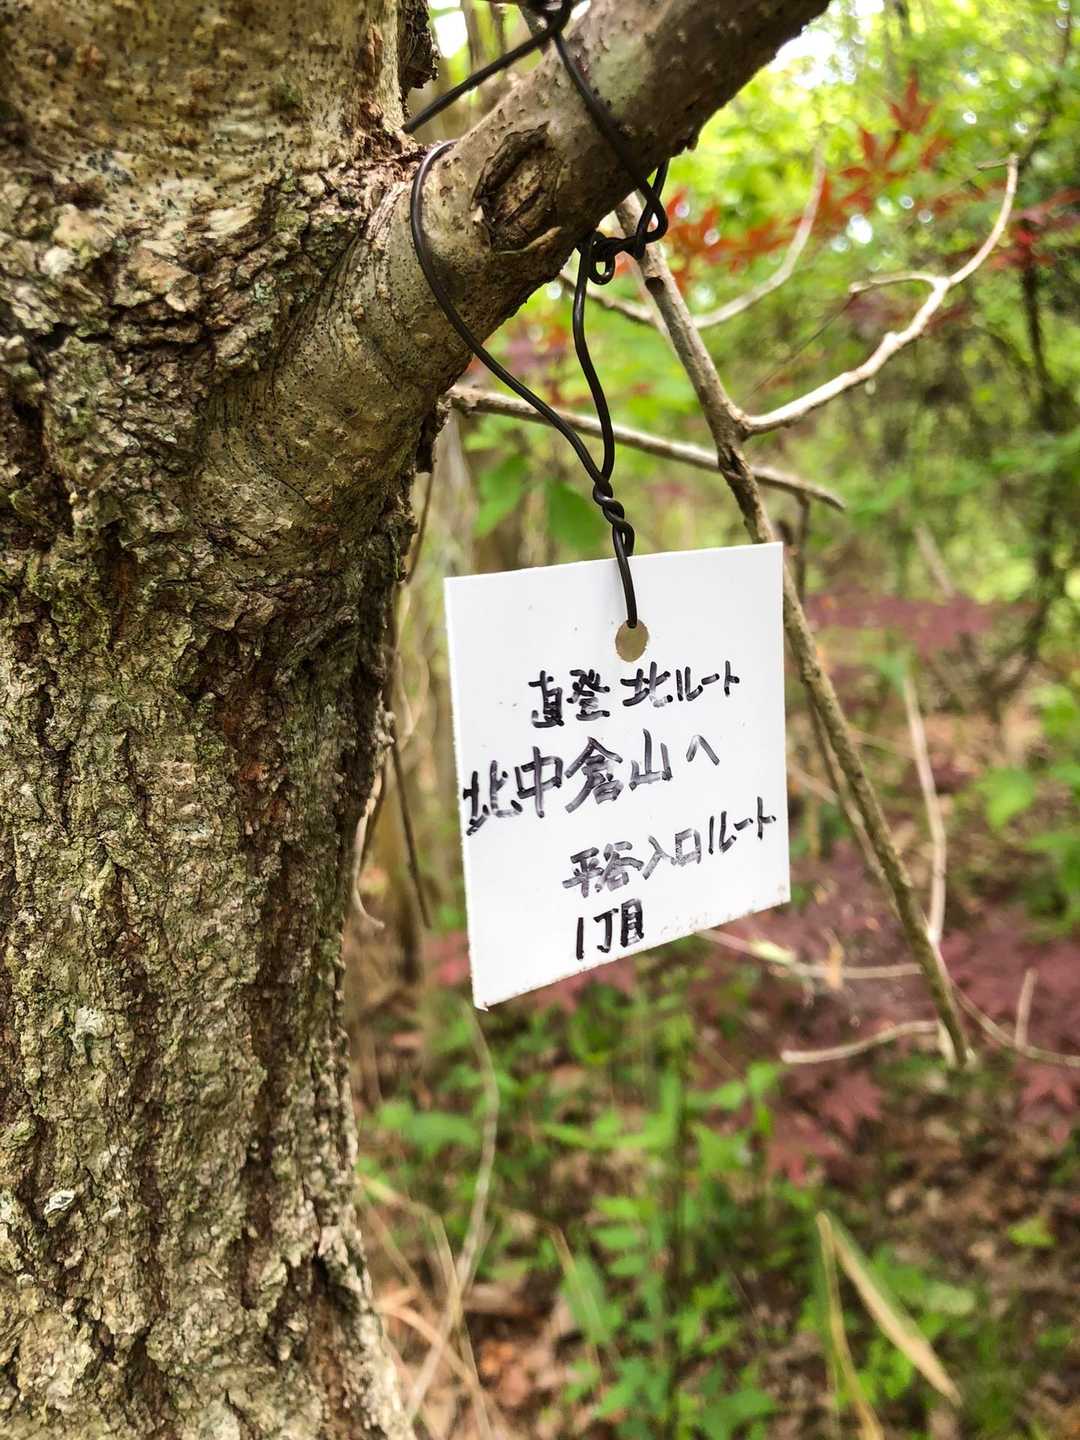 直登北ルート
北中倉山へ
平谷入口ルート
1丁目